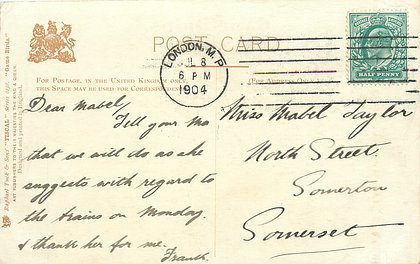 POST CARD
LONDON. M.P.
JL 8
6 PM
1904
HALF PENNY
FOR POSTAGE, IN THE UNITED KINGDOM ONLY,
THIS SPACE MAY BE USED FOR CORRESPONDENCE
(FOR ADDRESS ONLY.)
Raphael Tuck & Sons' "TUCAL" Series "Game Birds."
ART PUBLISHERS TO THEIR MAJESTIES THE KING & QUEEN.
Dear Mabel,
Tell your Ma
that we will do as she
suggests with regard to
the trains on Monday.
& thank her for me.
Frank.
Miss Mabel Taylor
North Street.
Somerton
Somerset.